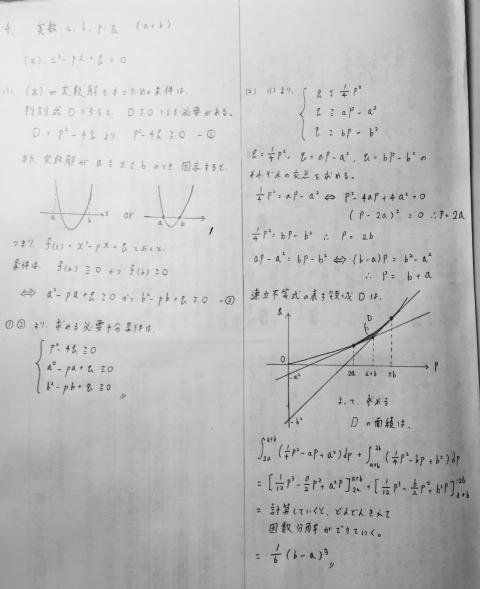 4. 実数 a, b, p, q (a<b)
(※) x²-px+q=0
(1) (※)が実数解をもつための条件は、
判別式 D とすると D≧0である必要がある。
D = p²-4q より p²-4q≧0 -①
また実数解が a≦x≦b のとき 図示すると、
a b x or a b
つまり、f(x)=x²-px+q とおくと
条件は、f(a)≧0 かつ f(b)≧0
⇔ a²-pa+q≧0 かつ b²-pb+q≧0 -②
①②より、求める必要十分条件は、
p²-4q≧0
a²-pa+q≧0
b²-pb+q≧0
(2) (1)より、
q≦1/4p²
q≧ap-a²
q≧bp-b²
q=1/4p², q=ap-a², q=bp-b² の
それぞれの交点を求める。
1/4p²=ap-a² ⇔ p²-4ap+4a²=0
(p-2a)²=0 ∴p=2a
1/4p²=bp-b² ∴ p=2b
ap-a²=bp-b² ⇔ (b-a)p=b²-a²
∴ p=b+a
連立不等式の表す領域Dは、
q
D
O
-a²
2a a+b 2b p
-b²
よって、求める
Dの面積は、
∫_{2a}^{a+b}(1/4p²-ap+a²)dp+∫_{a+b}^{2b}(1/4p²-bp+b²)dp
=[1/12p³-a/2p²+a²p]_{2a}^{a+b}+[1/12p³-b/2p²+b²p]_{a+b}^{2b}
= 計算していくと、どんどん消えて
因数分解ができていく。
= 1/6(b-a)³